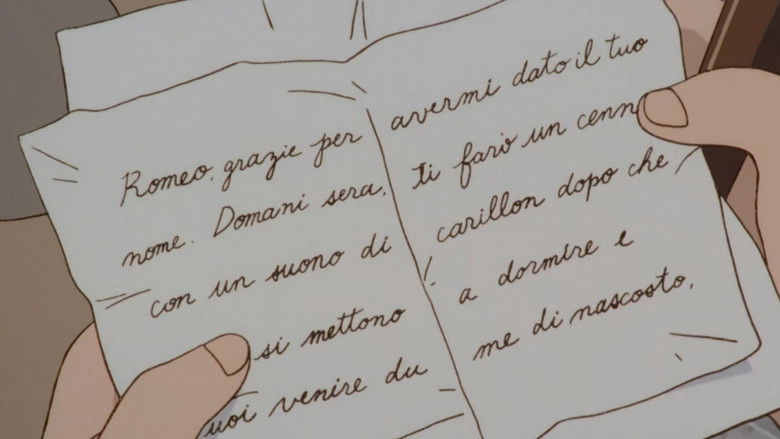 Romeo, grazie per avermi dato il tuo
nome. Domani sera, ti farò un cenn
con un suono di carillon dopo che
si mettono a dormire e
uoi venire du me di nascosto,